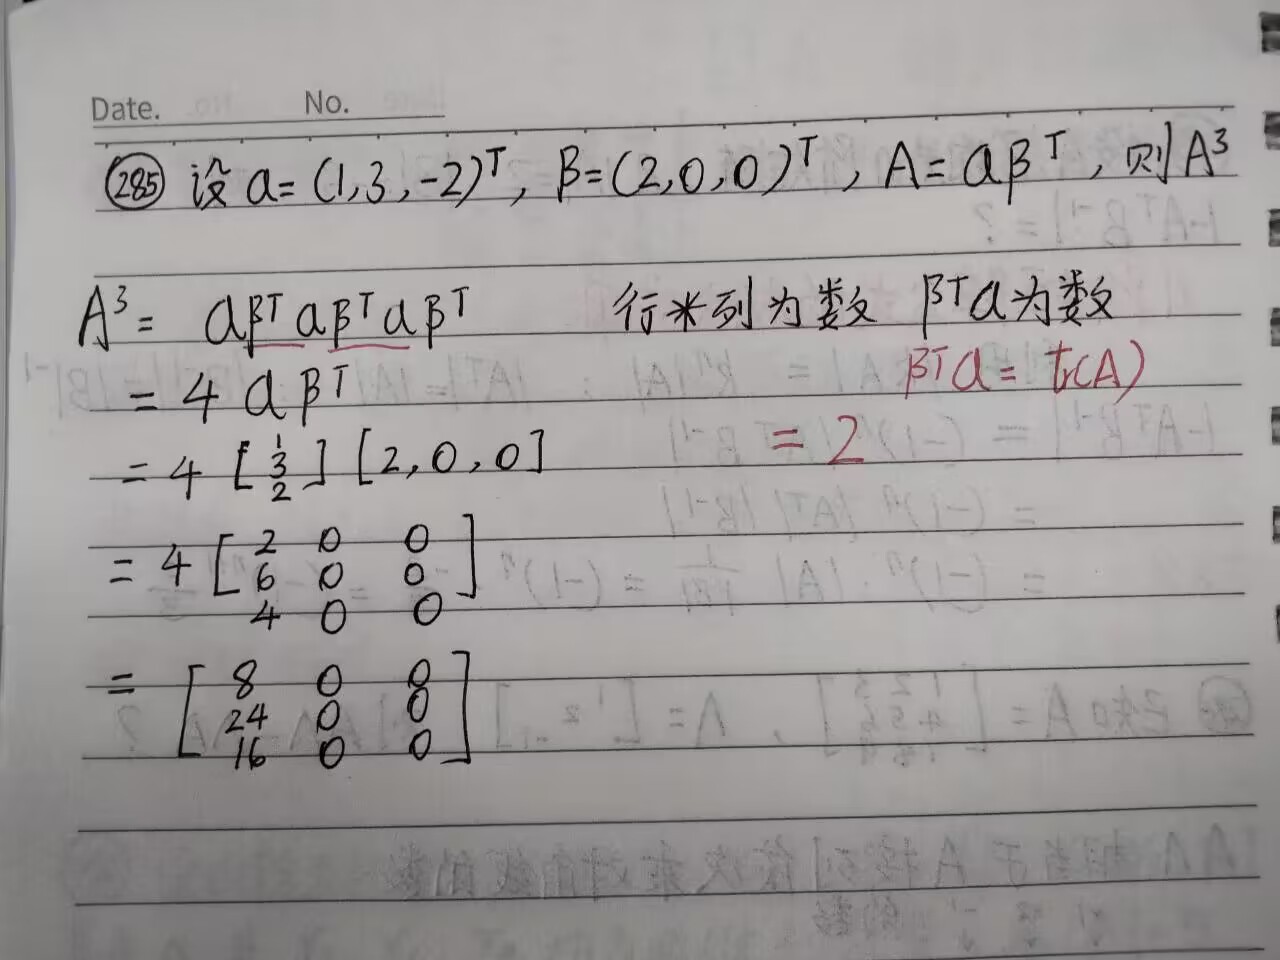 Date. No.
(285) 设 α=(1,3,-2)ᵀ, β=(2,0,0)ᵀ, A=αβᵀ, 则A³
A³= αβᵀαβᵀαβᵀ 行米列为数 βᵀα为数
βᵀα=tr(A)
=4αβᵀ
=2
=4[1 3 2][2,0,0]
=4[2 0 0
6 0 0
4 0 0]
=[8 0 0
24 0 0
16 0 0]